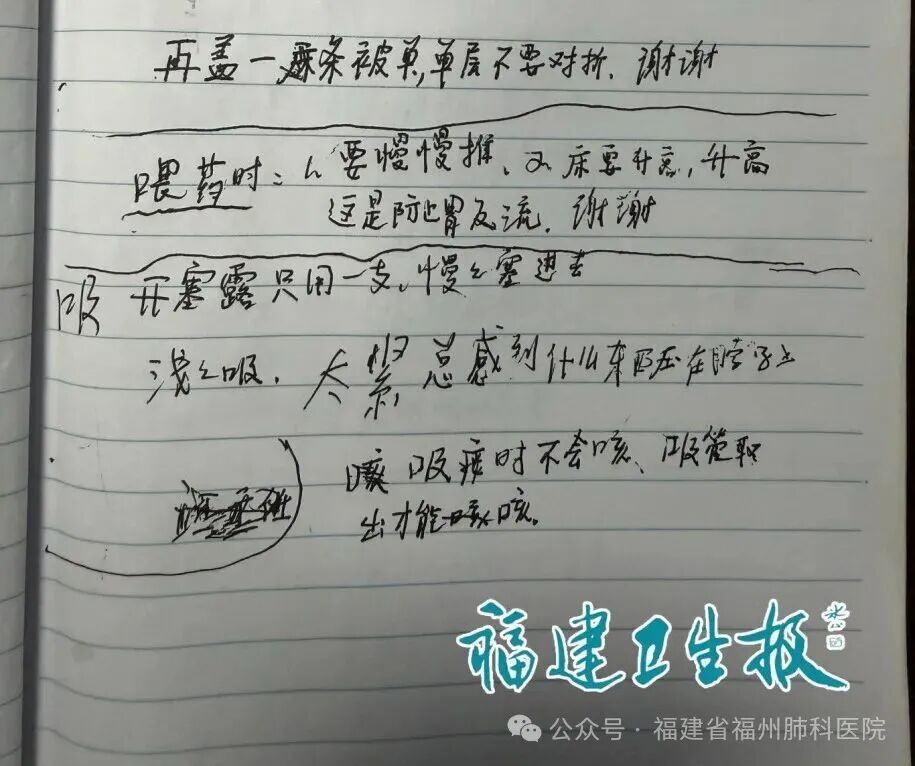 再盖一条被单，单层不要对折．谢谢
喂药时：1、要慢慢推、2、床要升高，升高
这是防止胃反流．谢谢
吸 开塞露只用一支、慢々塞进去
浅々吸．太紧总感到什么东西压在脖子上
咳 吸痰时不会咳、吸管取
出才能咳咳。
福建卫生报
公众号·福建省福州肺科医院